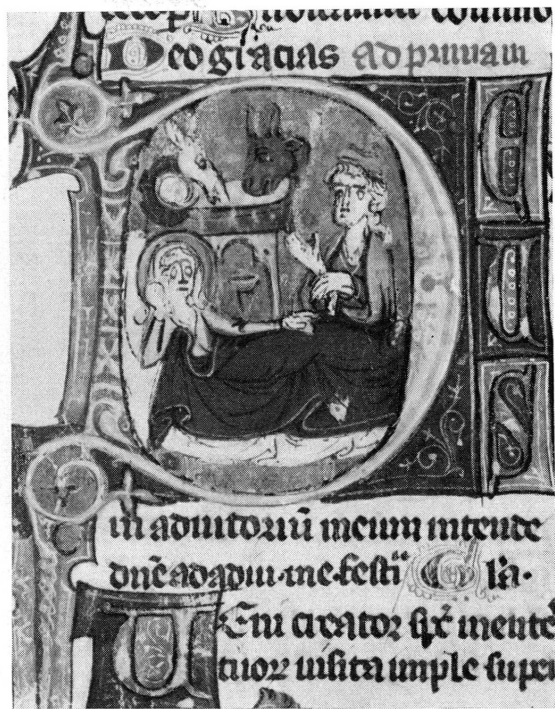 Deo gracias ad primam
DEUS
in adiutoriū meum intende
dnē ad adiu·me·festi Gla·
Ueni creator spc mente
tuorz uisita imple super